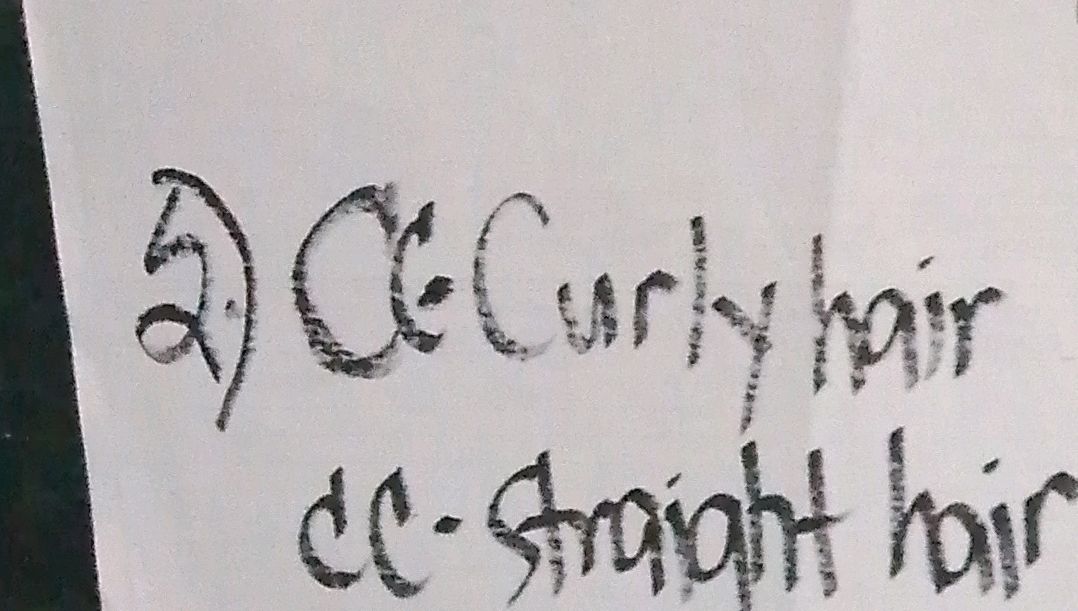 2.) Cc - Curly hair
cc - straight hair